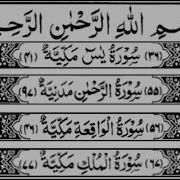 بِسْمِ اللهِ الرَّحْمٰنِ الرَّحِيْمِ
(۳۶) سُوْرَةُ يٰسٓ مَكِّيَّةٌ (۴۱)
(۵۵) سُوْرَةُ الرَّحْمٰنِ مَدَنِيَّةٌ (۹۷)
(۵۶) سُوْرَةُ الْوَاقِعَةِ مَكِّيَّةٌ (۴۶)
(۶۷) سُوْرَةُ الْمُلْكِ مَكِّيَّةٌ (۷۷)